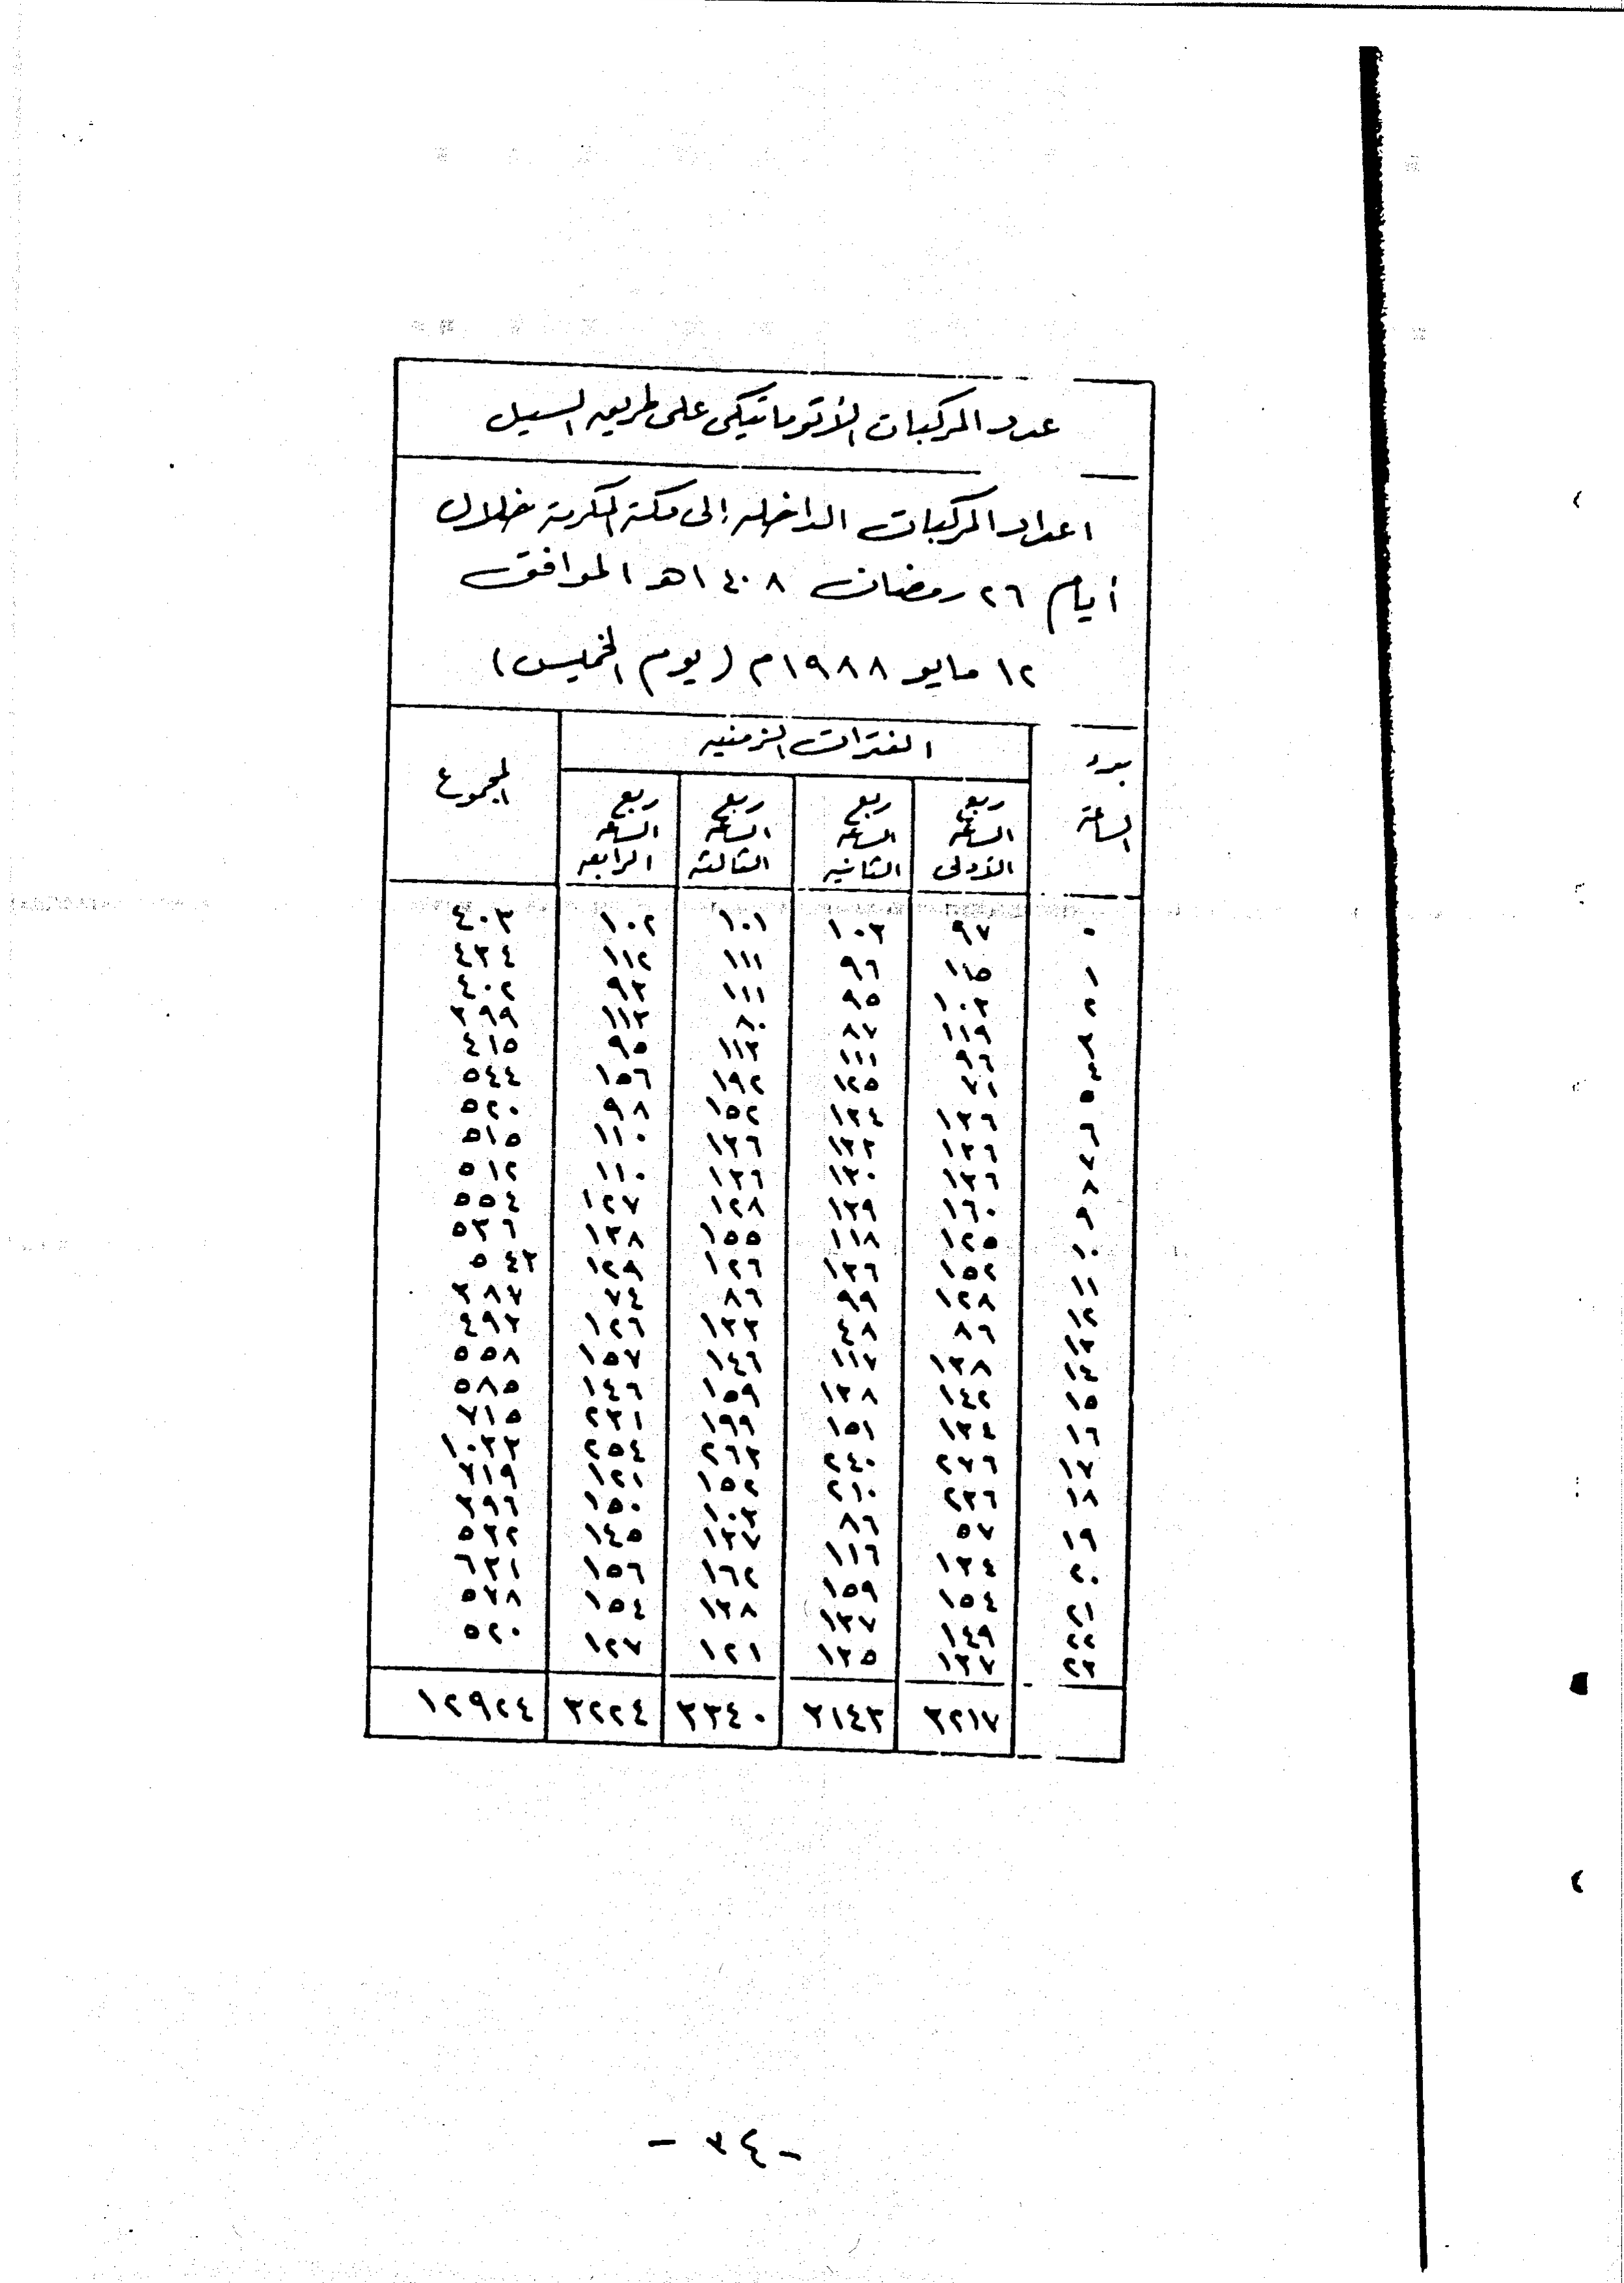 عدد المركبات الأتوماتيكى على طريق السيل
اعداد المركبات الداخله إلى مكة المكرمة خلال
أيام ٢٦ رمضان ١٤٠٨هـ الموافق
١٢ مايو ١٩٨٨م (يوم الخميس)
بدء الساعة الفترات الزمنيه المجموع
ربع الساعه الأولى ربع الساعه الثانيه ربع الساعه الثالثه ربع الساعه الرابعه
٠ ٩٧ ١٠٣ ١٠١ ١٠٢ ٤٠٣
١ ١١٥ ٩٦ ١١١ ١١٢ ٤٣٤
٢ ١٠٣ ٩٥ ١١١ ٩٣ ٤٠٢
٣ ١١٩ ٨٧ ٨٠ ١١٣ ٣٩٩
٤ ٩٦ ١١١ ١١٣ ٩٥ ٤١٥
٥ ٧١ ١٢٥ ١٩٢ ١٥٦ ٥٤٤
٦ ١٣٦ ١٣٤ ١٥٢ ٩٨ ٥٢٠
٧ ١٣٦ ١٣٣ ١٣٦ ١١٠ ٥١٥
٨ ١٣٦ ١٣٠ ١٣٦ ١١٠ ٥١٢
٩ ١٦٠ ١٣٩ ١٢٨ ١٢٧ ٥٥٤
١٠ ١٢٥ ١١٨ ١٥٥ ١٣٨ ٥٣٦
١١ ١٥٢ ١٣٦ ١٢٦ ١٢٩ ٥٤٣
١٢ ١٢٨ ٩٩ ٨٦ ٧٤ ٣٨٧
١٣ ٨٦ ٤٨ ١٣٣ ١٢٦ ٤٩٣
١٤ ١٣٨ ١١٧ ١٤٦ ١٥٧ ٥٥٨
١٥ ١٤٢ ١٣٨ ١٥٩ ١٤٦ ٥٨٥
١٦ ١٣٤ ١٥١ ١٩٩ ٢٣١ ٧١٥
١٧ ٢٧٦ ٢٤٠ ٢٦٣ ٢٥٤ ١٠٣٣
١٨ ٢٣٦ ٢١٠ ١٥٢ ١٢١ ٧١٩
١٩ ٥٧ ٨٦ ١٠٣ ١٥٠ ٣٩٦
٢٠ ١٣٤ ١١٦ ١٣٧ ١٤٥ ٥٣٢
٢١ ١٥٤ ١٥٩ ١٦٢ ١٥٦ ٦٣١
٢٢ ١٤٩ ١٣٧ ١٣٨ ١٥٤ ٥٧٨
٢٣ ١٣٧ ١٣٥ ١٢١ ١٢٧ ٥٢٠
٣٢١٧ ٣١٤٣ ٣٣٤٠ ٣٢٢٤ ١٢٩٢٤
- ٣٤ -